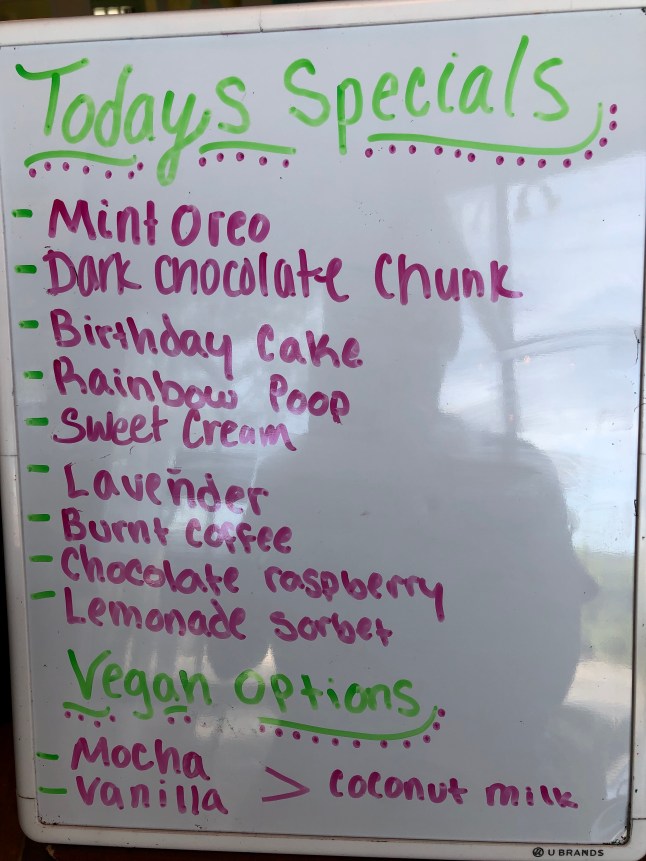 Todays Specials
- Mint Oreo
- Dark Chocolate Chunk
- Birthday Cake
- Rainbow Poop
- Sweet Cream
- Lavender
- Burnt Coffee
- Chocolate raspberry
- Lemonade sorbet
Vegan options
- Mocha
- Vanilla > coconut milk
U BRANDS